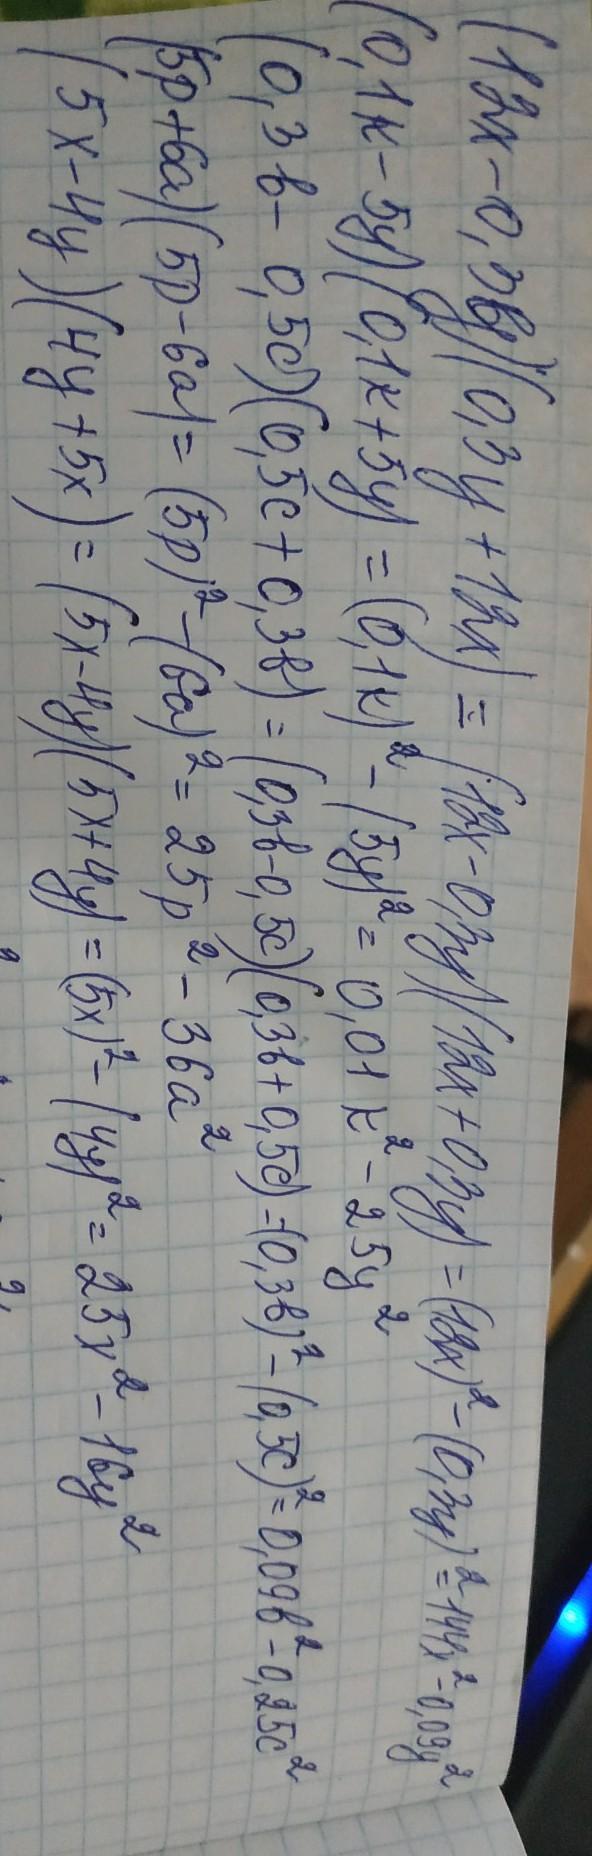 (12x-0,3y)(0,3y+12x)=(12x-0,3y)(12x+0,3y)=(12x)²-(0,3y)²=144x²-0,09y²
(0,1x-5y)(0,1x+5y)=(0,1x)²-(5y)²=0,01x²-25y²
(0,3b-0,5c)(0,5c+0,3b)=(0,3b-0,5c)(0,3b+0,5c)-(0,3b)²-(0,5c)²=0,09b²-0,25c²
(5p+6a)(5p-6a)=(5p)²-(6a)²=25p²-36a²
(5x-4y)(4y+5x)=(5x-4y)(5x+4y)=(5x)²-(4y)²=25x²-16y²